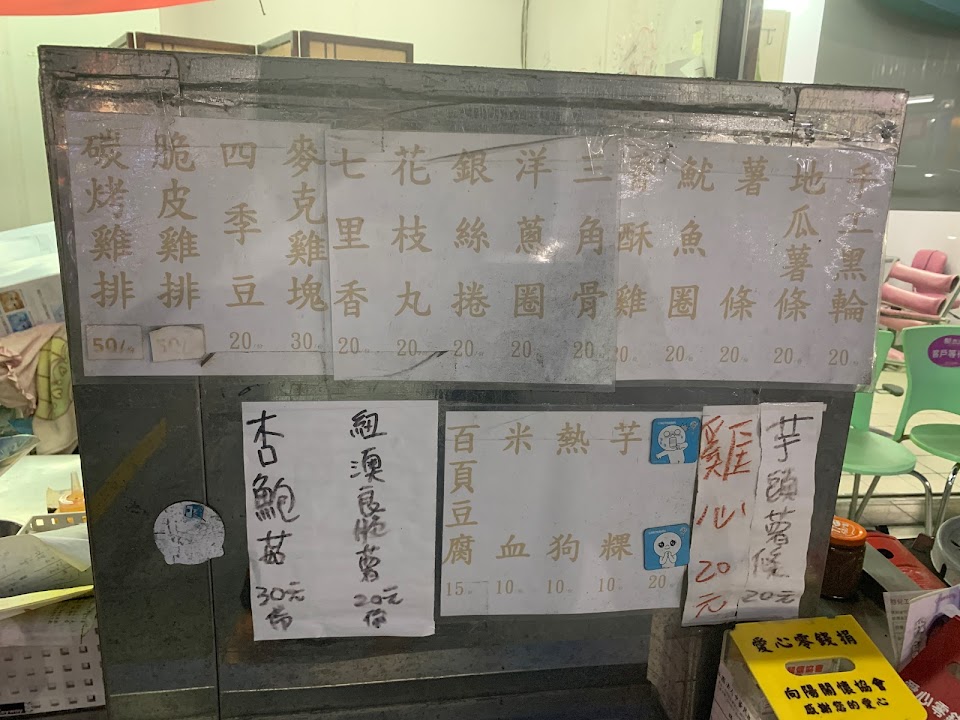 碳烤雞排
50/
脆皮雞排
四季豆
20
麥克雞塊
30
七里香
20
花枝丸
20
銀絲捲
20
洋蔥圈
20
三角骨
20
酥雞
20
魷魚圈
20
薯條
20
地瓜薯條
20
黑輪
20
杏鮑菇
30元
份
紐澳良脆薯
20元
份
百頁豆腐
15
米血
10
熱狗
10
芋粿
10
20
雞心20元
芋頭薯條
20元
愛心零錢捐
向陽關懷協會
感謝您的愛心